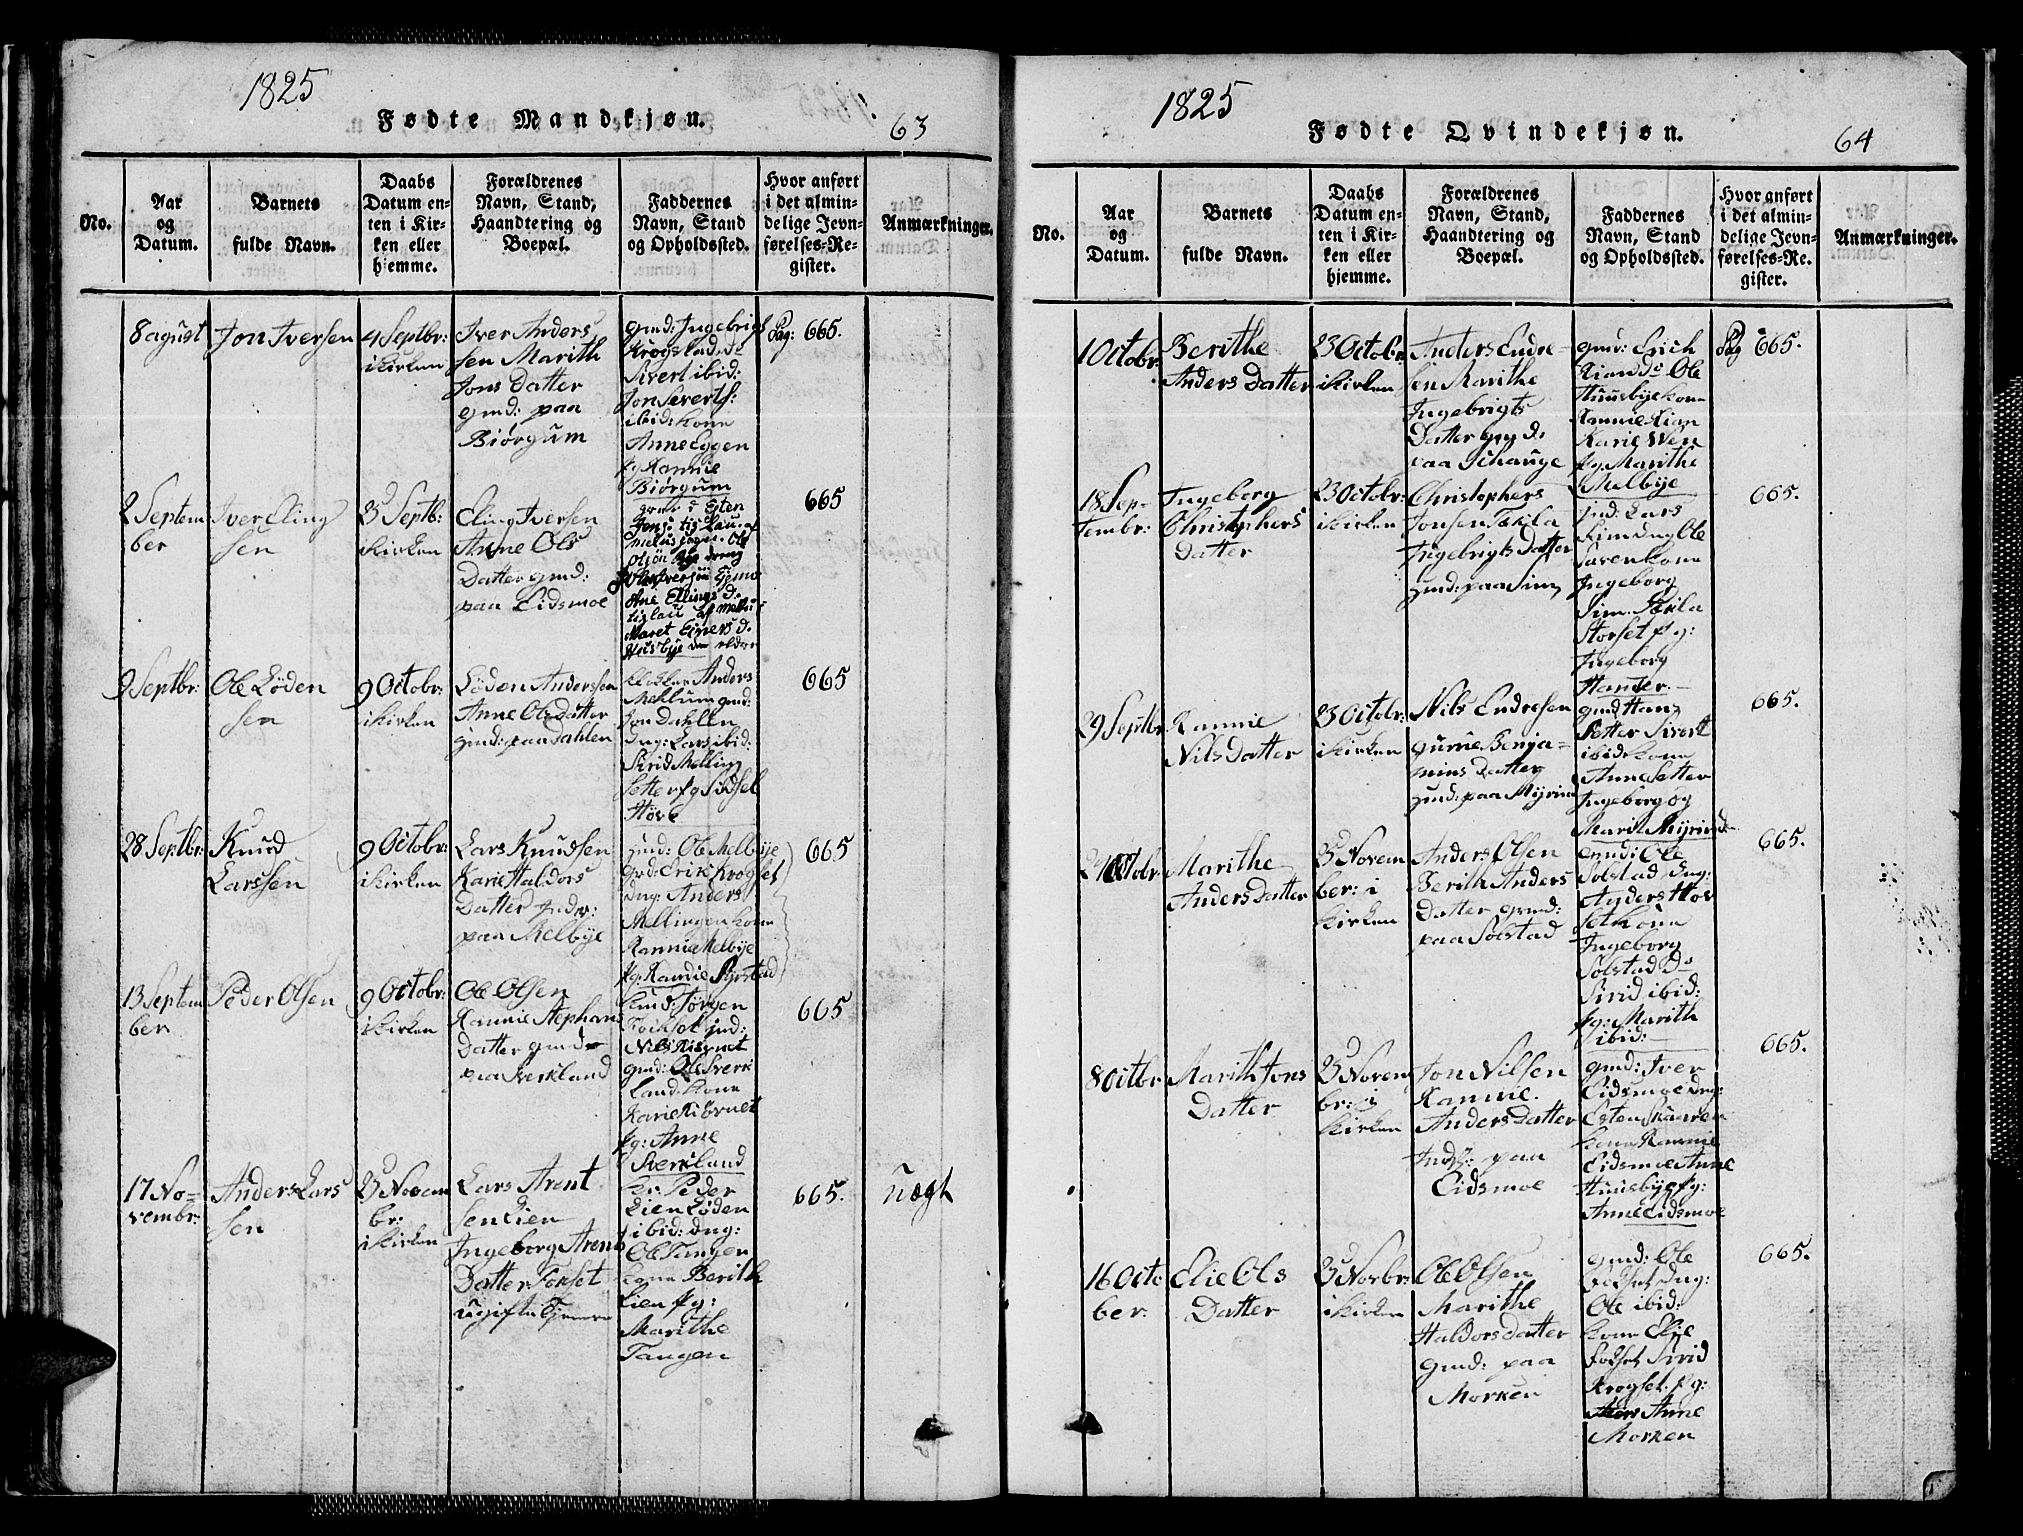 1825
Fødte Mandkjøn.
63
No.
Aar
og
Datum.
Barnets
fulde Navn.
Daabs
Datum en-
ten i Kir-
ken eller
hjemme.
Forældrenes
Navn, Stand,
Haandtering og
Boepæl.
Faddernes
Navn, Stand
og Opholdssted.
Hvor anført
i det almin-
delige Jevn-
førelses-Re-
gister.
Anmærkninger.
8 august
Jon Iversen
4 Septbr:
i Kirken
Iver Anders
sen Marith
Jons Datter
gmd: paa
Biørgum
gmd: Ingebrigt
Krogstad do
Sivert ibid:
Jon Sivertss:
ibid: kone
Anne Eggen
pg Rannie
Biørgum
Pag: 665.
2 Septem
ber
Iver Eling
sen
23 Septb:
i Kirken
Eling Iversen
Anne Ols
Datter gmd:
paa Eidsmoe
gmr: Esten
Ole Iversøn
Ane Ellings d.
Maret Einers d.
Huusbye den eldre
665
9 Septbr:
Ole Løden
sen
9 Octobr:
i Kirken
Løden Anderssen
Anne Olsdatter
gmd: paa Dahlen
Anders
Mellum gmd:
Jon Dahlen
Dng: Lars ibid:
Sirid Melling
setter pg Sidsel
Høve
665
28 Septbr:
Knud
Larssen
9 Octobr:
i Kirken
Lars Knudsen
Karie Haldors
Datter
paa Melbye
Ole Melbye
Erik Krogset
Dng: Anders
Mellingen kone
Rannie Melbye
pg: Rannie Syrstad
665
13 Septem
ber
Peder Olsen
9 Octobr:
i Kirken
Ole Olsen
Rannie Stephans
Datter gmd
paa Sverkland
gmd: Jørgen
Nils Kiørnet
gmd: Ole Sverk
land. kone
Karie Kiørnet
pg: Anne
Sverkland
665
17 No-
vembr:
Anders Lars
sen
23 Novem
br:
i Kirken
Lars Arent
sen Lien
Ingeborg Arents
Datter Fonset
ugifte Tjenere
Peder
Lien Løden
ibid: dng:
Ole Tangen
kone Berith
Lien pg:
Marithe
Tangen
665.
uægt
1825
Fødte Qvindekjøn.
64
No.
Aar
og
Datum.
Barnets
fulde Navn.
Daabs
Datum en-
ten i Kir-
ken eller
hjemme.
Forældrenes
Navn, Stand,
Haandtering og
Boepæl.
Faddernes
Navn, Stand
og Opholdssted.
Hvor anført
i det almin-
delige Jevn-
førelses-Re-
gister.
Anmærkninger.
1 Octobr:
Berithe
Anders Datter
23 Octobr:
i Kirken
Anders Endre-
sen Marithe
Ingebrigts
Datter gmd:
paa Schauge
gmr: Erich
Kian do Ole
Huusbye kone
Rannie Kian
Karie Wen
pg Marithe
Melbye
Pag 665.
18 Sep-
tembr:
Ingeborg
Christophers
Datter
23 Octobr:
i Kirken
Christophers
Jonsen Tekila
Ingebrigts Datter
gmd: paa Sim
Lars
Sim dng Ole
kone
Ingeborg
Sim. Tekila
Storset pg:
Ingeborg
665.
29 Septbr
Rannie
Nils Datter
23 Octobr:
i Kirken
Nils Endresen
gurue Benja-
mins Datter
gmd: paa Myrim
gmd Hans
Setter Sivert
ibid kone
Anne Setter
Ingeborg og
Marit Myrim
665.
Octobr
Marithe
Anders Datter
23 Novem
ber: i
Kirken
Anders Olsen
Berith Anders
Datter gmd:
paa Solstad
gmd: Ole
Solstad Dng:
Anders Hov
set kone
Ingeborg
Solstad Do
Sirid ibid:
pg: Marith
ibid:
665.
8 Octbr
Marith Jons
Datter
23 Novem
br: i
Kirken
Jon Nilsen
Rannie.
Anders Datter
Inds: paa
Eidsmoe
gmd: Iver
Eidsmoe Dng:
Esten Skaaren
kone Rannie
Eidsmoe Anne
Huusbye pg:
Anne Eidsmoe
665.
16 Octo
ber.
Elie Ols
Datter
23 Novbr:
i Kirken
Ole Olsen
Marithe
Haldors datter
gmd: paa
Morken
gmd: Ole
Folset Dng:
Ole ibid:
kone Elie
Folset Sirid
Krogset. pg:
Anne
Morken
665.